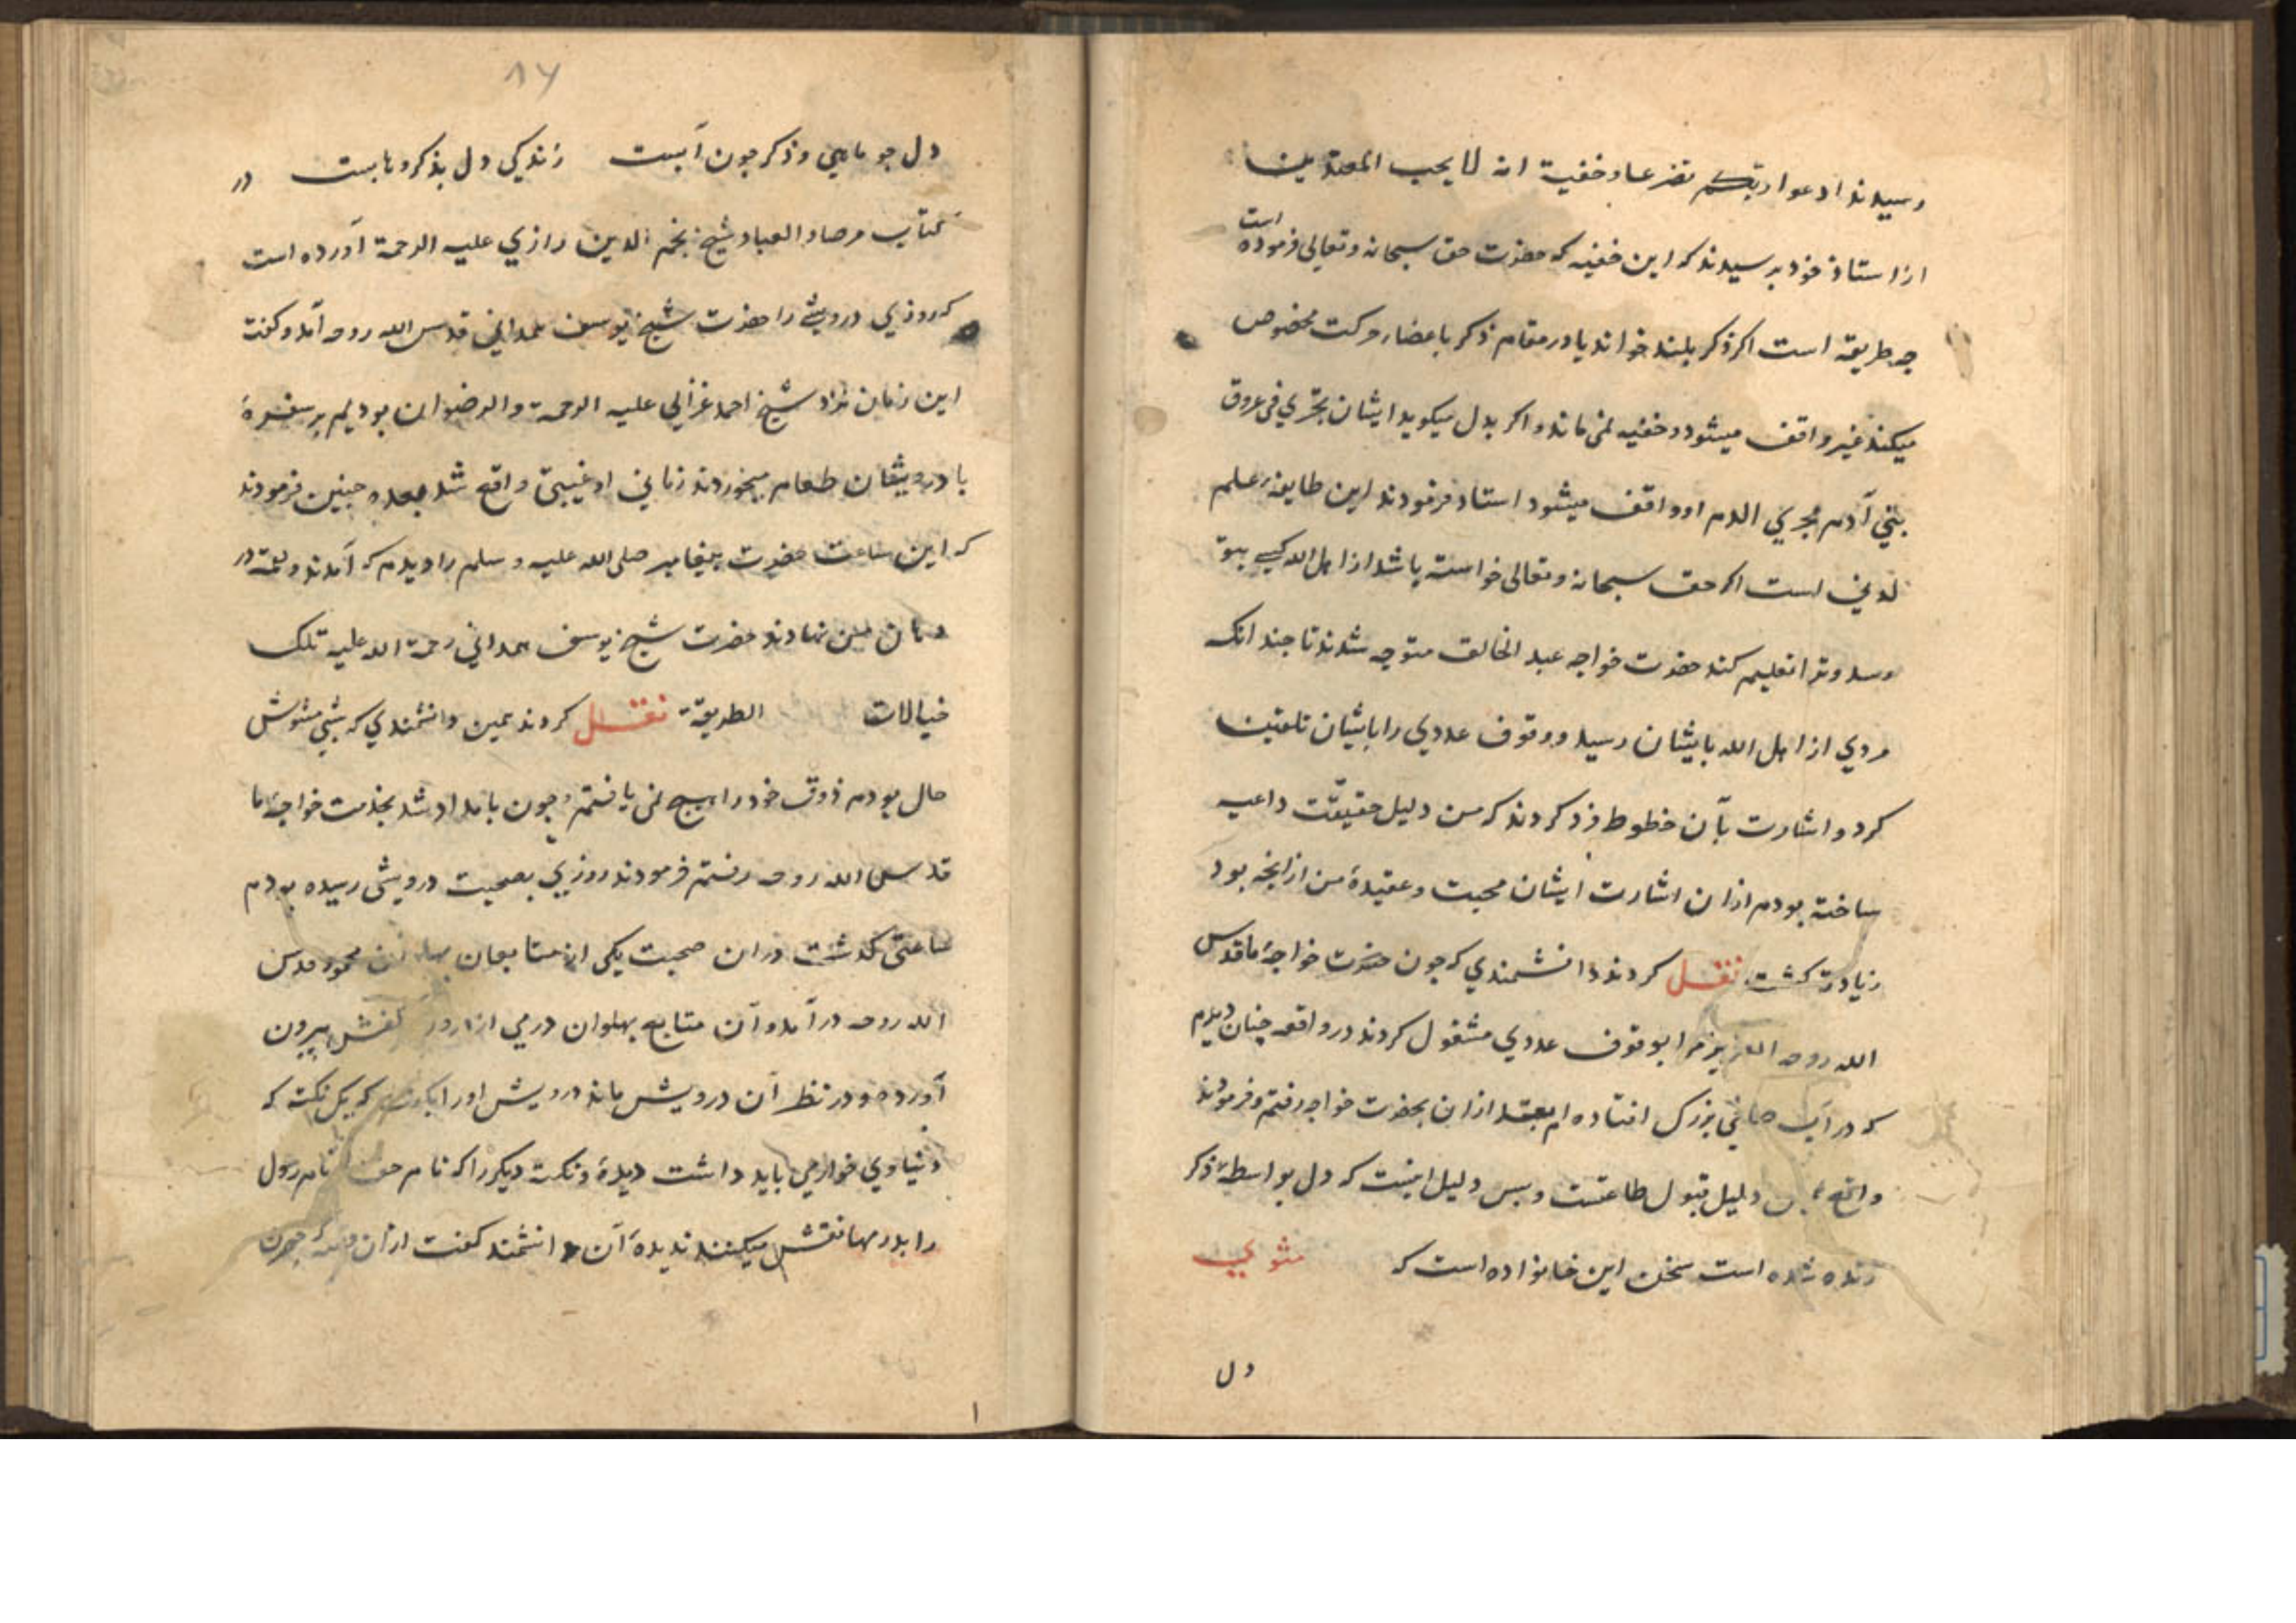 رسیدند ادعوا ربکم تضرعا وخفیة انه لا یحب المعتدین
ازاستاذ خود پرسیدند که این خفیه که حضرت حق سبحانه وتعالی فرموده است
چه طریقه است اکر ذکر بلند خواند یا در مقام ذکر باعضا حرکت مخصوص
میکند غیر واقف میشود و خفیه نمی ماند و اکر بدل میکوید ایشان یجری فی عروق
بنی آدم مجری الدم او واقف میشود استاد فرمودند این طایفه علم
لدنی است اکر حق سبحانه وتعالی خواسته باشد از اهل الله کسی بتو
رسد و ترا تعلیم کند حضرت خواجه عبد الخالق متوجه شدند تا چند انک
مردی از اهل الله بایشان رسید و وقوف عددی را بایشان تلقین
کرد و اشارت بآن خطوط فرد کردند که من دلیل حقیقت داعیه
ساخته بودم ازان اشارت ایشان محبت و عقیدهٔ من ازانچه بود
زیادت کشت نقل کردند دانشمندی که چون حضرت خواجهٔ ما قدس
الله روحه العزیز مرا بوقوف عددی مشغول کردند در واقعه چنان دیدم
که در آب صافی بزرک افتاده ام بعد ازان بحضرت خواجه رفتم فرمودند
واقعه دلیل قبول طاعتست و بس دلیل اینست که دل بواسطهٔ ذکر
زنده شده است سخن این خانواده است که مثنوی
دل
۱۷
دل چو ماهی و ذکر چون آبست زندکی دل بذکر وهابست در
کتاب مرصاد العباد شیخ نجم الدین رازی علیه الرحمة آورده است
که روزی درویشی را حضرت شیخ یوسف همدانی قدس الله روحه آمد و کفت
این زمان نزد شیخ احمد غزالی علیه الرحمة والرضوان بودیم بر سفرهٔ
با درویشان طعام میخوردند زمانی او غیبتی واقع شد بعده چنین فرمودند
که این ساعت حضرت پیغامبر صلی الله علیه و سلم را دیدم که آمدند و لقمه در
دهان من نهادند حضرت شیخ یوسف همدانی رحمة الله علیه تلک
خیالات الطریقة نقل کردند همین دانشمندی که شبی مشوش
حال بودم ذوق خود را هیچ نمی یافتم چون بامداد شد بخدمت خواجهٔ ما
قدس الله روحه رفتم فرمودند روزی بصحبت درویشی رسیده بودم
ساعتی کذشت دران صحبت یکی از متابعان پهلوان محمود قدس
الله روحه در آمد و آن متابع پهلوان درمی از کفش بیرون
آورده و در نظر آن درویش ماند درویش اورا که یک نکته که
دنیاوی خوار می باید داشت دیدهٔ و نکته دیکر را که نام حق نام رسول
را بدرمها نقش میکنند ندیدهٔ آن دانشمند کفت ازان که چون